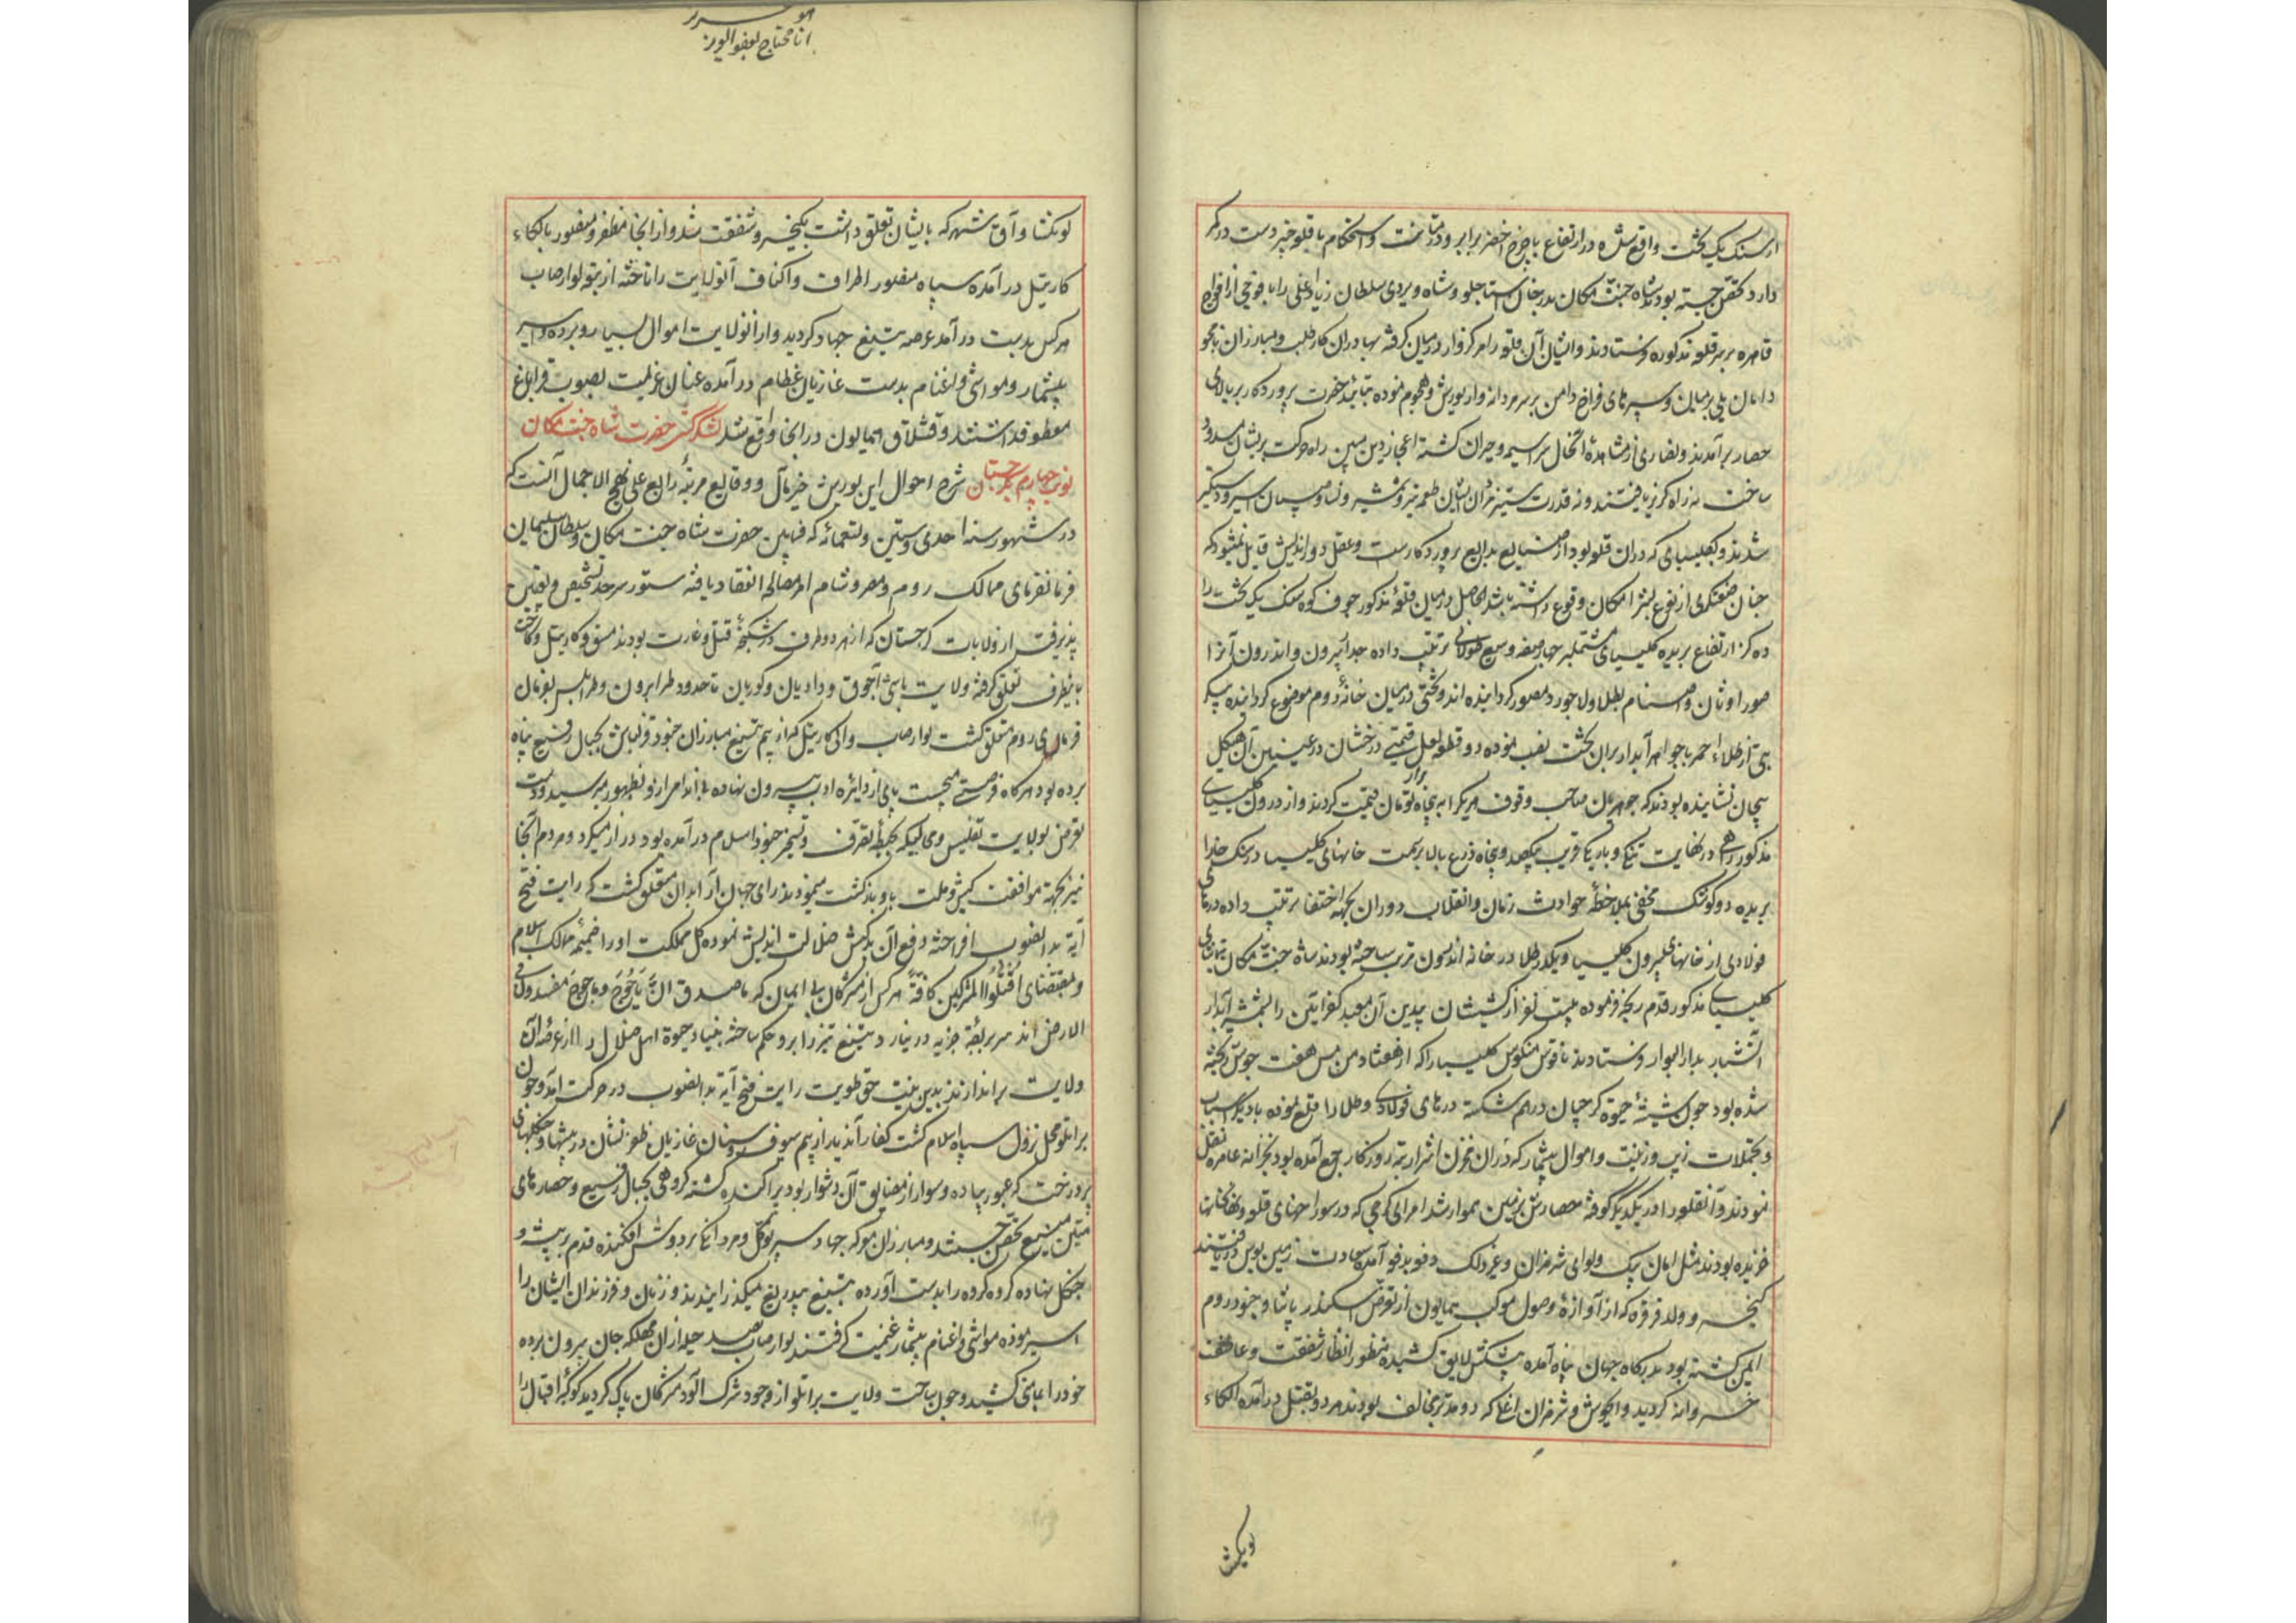 از سنگ یک لخت واقع شده در ارتفاع با چرخ اخضر برابر و در متانت و استحکام با قلعه خیبر دست در کمر
دارد تحصن جسته بودند شاه جنت مکان بدر خان استاجلو و شاه ویردی سلطان زیاد اغلی را با فوجی از افواج
قاهره بر سر قلعه مذکوره فرستادند و ایشان آن قلعه را مرکزوار در میان گرفته بهادران کار طلب و مبارزان نامجو
دامان یلی بر میان و سپرهای فراخ دامن بر سر مردانه وار یورش و هجوم نموده بتائید حضرت پروردگار بر بالای
حصار برآمدند و نصاری از مشاهدهٔ آنحال سراسیمه و حیران گشته اعجاز دین مبین راه حرکت بر ایشان مسدود
ساخت نه راه گریز یافتند و نه قدرت ستیز مردان ایشان طعمه تیر و شمشیر و نسا و صبیان اسیر و دستگیر
شدند و کلیسیائی که در آن قلعه بود از صنایع بدایع پروردگارست و عقل دوراندیش قایل نمیشود که
چنان صنعتگری از نوع بشر امکان وقوع داشته باشد الحاصل در میان قلعهٔ مذکور جوف کوه سنگ یک لخت را
ده گز ارتفاع بریده کلیسیای مشتمل بر چهار صفه وسیع طولانی ترتیب داده جدار بیرون و اندرون آنرا
صور اوثان و اصنام بطلا و لاجورد مصور گردانیده اند و تختی در میان خانهٔ دوم موضوع گردانیده پیکر
بتی از طلاء احمر با جواهر آبدار بر آن تخت نصب نموده دو قطعه لعل قیمتی درخشان در عینین آن هیکل
بیجان نشانیده بودند که جوهریان صاحب وقوف هریک را به پنجاه هزار تومان قیمت کردند و از درون کلیسیای
مذکور راهی در نهایت تنگی و باریکی قریب یکصد و پنجاه ذرع بالا بر سمت خانهای کلیسیا در سنگ خارا
بریده دو کوشک مخفی بملاحظهٔ حوادث زمان و انقلاب دوران بجهة اختفا ترتیب داده درهای
فولادی از خانهای بیرون کلیسیا و یکدر طلا در خانه اندرون ترتیب ساخته بودند شاه جنت مکان بتماشای
کلیسیای مذکور قدم رنجه فرموده بیست نفر از کشیشان بیدین آن معبد کفرآیین را بشمشیر آبدار
آتشبار بدار البوار فرستادند ناقوس منکوس کلیسیا را که از هفتاد من مس هفت جوش ریخته
شده بود چون شیشهٔ حیوة گرجیان درهم شکسته درهای فولادی و طلا را قلع نموده با دیگر اسباب
و تجملات زیب و زینت و اموال بیشمار که در آن مخزن اشرار بمرور روزگار جمع آمده بود بخزانه عامره نقل
نمودند و آن قلعه را در یکدیگر کوفته حصارش بزمین هموار شد امرای گرجی که در سوراخهای قلعه و نهانخانها
خزیده بودند مثل امان بیک و لوای شرمزان و غیر ذلک دفعه بدفعه آمده سعادت زمین بوس دریافتند
کیخسرو ولد قرقره که از آوازهٔ وصول موکب همایون از تعرض اسکندر پاشا و جنود روم
ایمن گشته بود بدرگاه جهان پناه آمده پیشکش لایق کشیده منظور انظار شفقت و عاطفت
خسروانه گردید و واخوش و شرمزان اغلی که دو متمرد مخالف بودند هر دو بقتل درآمده الکاء
تومکشا

هو
انا محتاج لعفو

تومکشا و آق شهر که بایشان تعلق داشت بکیخسرو شفقت شد و از آنجا مظفر و منصور بالکاء
کارتیل درآمده سپاه منصور اطراف و اکناف آنولایت را تاخته از تبعه لوارصاب
هر کس بدست درآمد عرضه تیغ جهاد گردید و از آنولایت اموال بسیار و برده و اسیر
بیشمار و مواشی و اغنام بدست غازیان عظام درآمده عنان عزیمت بصوب قراباغ
معطوف داشتند و قشلاق همایون در آنجا واقع شد لشکرکشی حضرت شاه جنت مکان
نوبت چهارم بگرجستان شرح احوال این یورش خیرمآل و وقایع مرتبهٔ رابع علی نهج الاجمال آنست که
در شهور سنه احدی و ستین و تسعمائه که فیمابین حضرت شاه جنت مکان و سلطان سلیمان
فرمانفرمای ممالک روم و مصر و شام امر مصالحه انعقاد یافته ستور سرحد تشخیص و تعیین
پذیرفت از ولایات گرجستان که از هر دو طرف در شکنجهٔ قتل و غارت بودند مسق و کارتیل و کاخت
باینطرف تعلق گرفته ولایت باشی آچوق و دادیان و کوریان تا حدود طرابزون و طرابلس بفرمان
فرمای روم متعلق گشت لوارصاب والی کارتیل که از بیم تیغ مبارزان جنود قزلباش بجبال رفیع پناه
برده بود هرگاه فرصتی میجست پای از دایره ادب بیرون نهاده بی اندامی از او بظهور میرسید و دست
تعرض بولایت تفلیس و محالیکه بحیطهٔ تصرف و تسخیر جنود اسلام درآمده بود دراز میکرد و مردم آنجا
نیز بجهة موافقت کیش و ملت باو بازگشت مینمودند رای جهان آرا بدان متعلق گشت که رایت فتح
آیة بدانصوب افراخته دفع آن بدکیش ضلالت اندیش نموده کل مملکت او را ضمیمه ممالک اسلام
و بمقتضای اقتلوا المشرکین کافة هر کس از مشرکان بی ایمان که ماصدق ان یاجوج و ماجوج مفسدون فی
الارض اند سر بربقهٔ جزیه درنیارد و بتیغ تیز زابر و حکم ساخته بنیاد حیوة اهل ضلال را از عرصهٔ آن
ولایت براندازند بدین نیت حق طویت رایت فتح آیة بدانصوب در حرکت آمد و چون
براتلو محل نزول سپاه اسلام گشت کفار آندیار از بیم سیوف و سنان غازیان ظفر نشان در بیشها و جنگلهای
پردرخت که عبور پیاده و سوار از مضایق آن دشوار بود پراکنده گشته گروهی بجبال رفیع و حصارهای
متین منیع تحصن جستند و مبارزان معرکه جهاد سپر توکل و مردانگی بر دوش افکنده قدم در بیشه و
جنگل نهاده گروه گروه را بدست آورده بتیغ بیدریغ میگذرانیدند و زنان و فرزندان ایشان را
اسیر نموده مواشی و اغنام بیشمار غنیمت گرفتند لوارصاب بصد حیله از آن مهلکه جان بیرون برده
خود را بمامنی کشید و چون ساحت ولایت براتلو از وجود شرک آلود مشرکان پاک گردید کوکبهٔ اقبال را